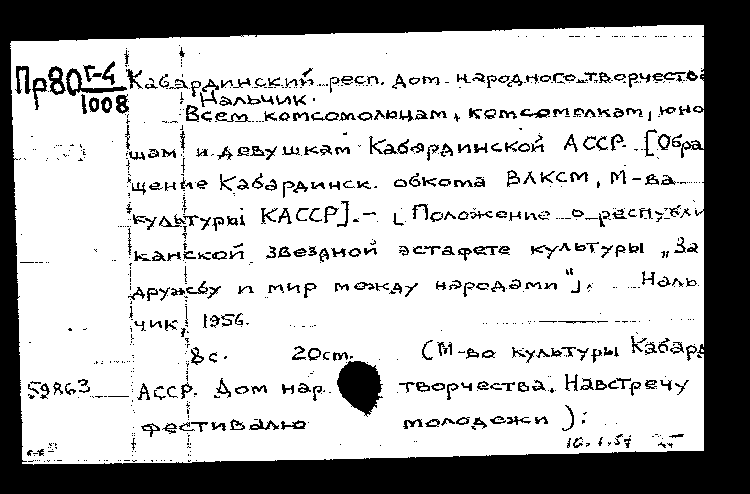 Пр80 Г-4/1008
Кабардинский респ. дом народного творчества
Нальчик.
Всем комсомольцам, комсомолкам, юно
шам и девушкам Кабардинской АССР. [Обра
щение Кабардинск. обкома ВЛКСМ, М-ва
культуры КАССР]. – [Положение о республи
канской звездной эстафете культуры „За
дружбу и мир между народами“]. Наль
чик, 1956.
8с. 20см. (М-во культуры Кабард
59863 АССР. Дом нар творчества. Навстречу
фестивалю молодежи).